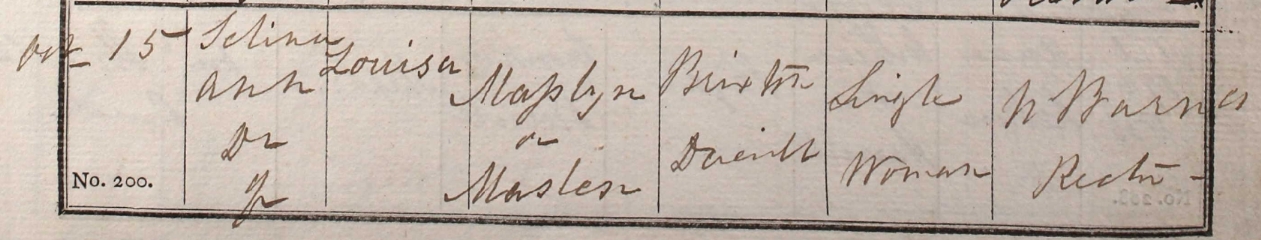 Oct 15
Selina
Ann
Dr
of
Louisa
Maslyn
or
Maslen
Brixton
Deverill
Single
Woman
W Barnes
Rector
No. 200.